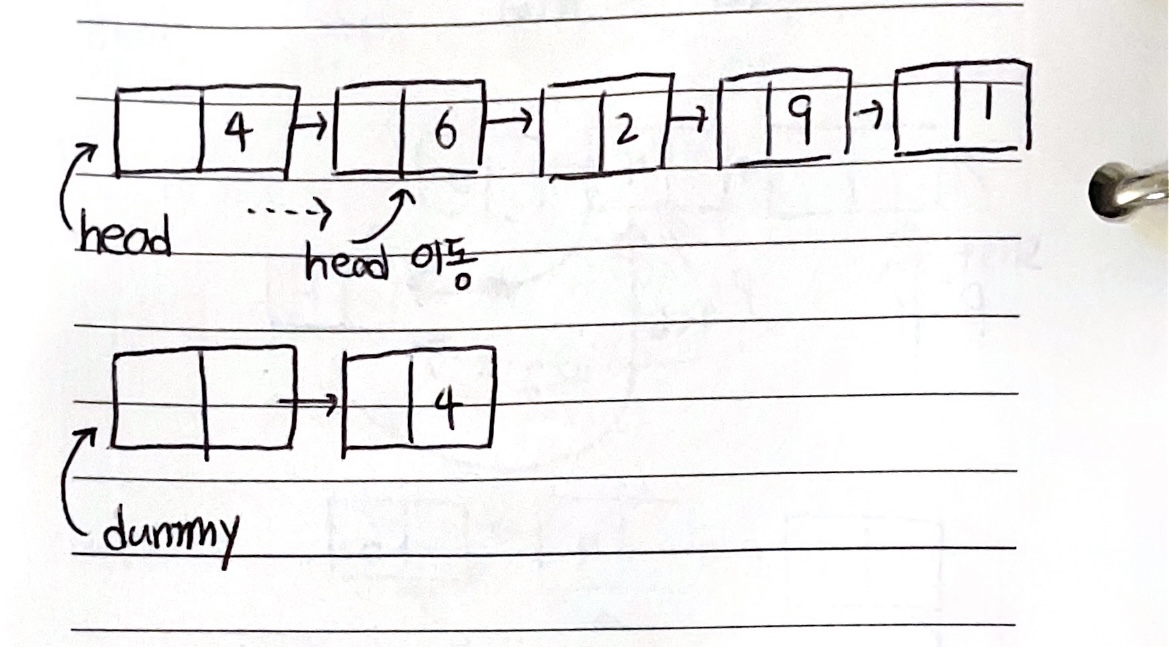 4 → 6 → 2 → 9 → 1
head
head 이동
→ 4
dummy